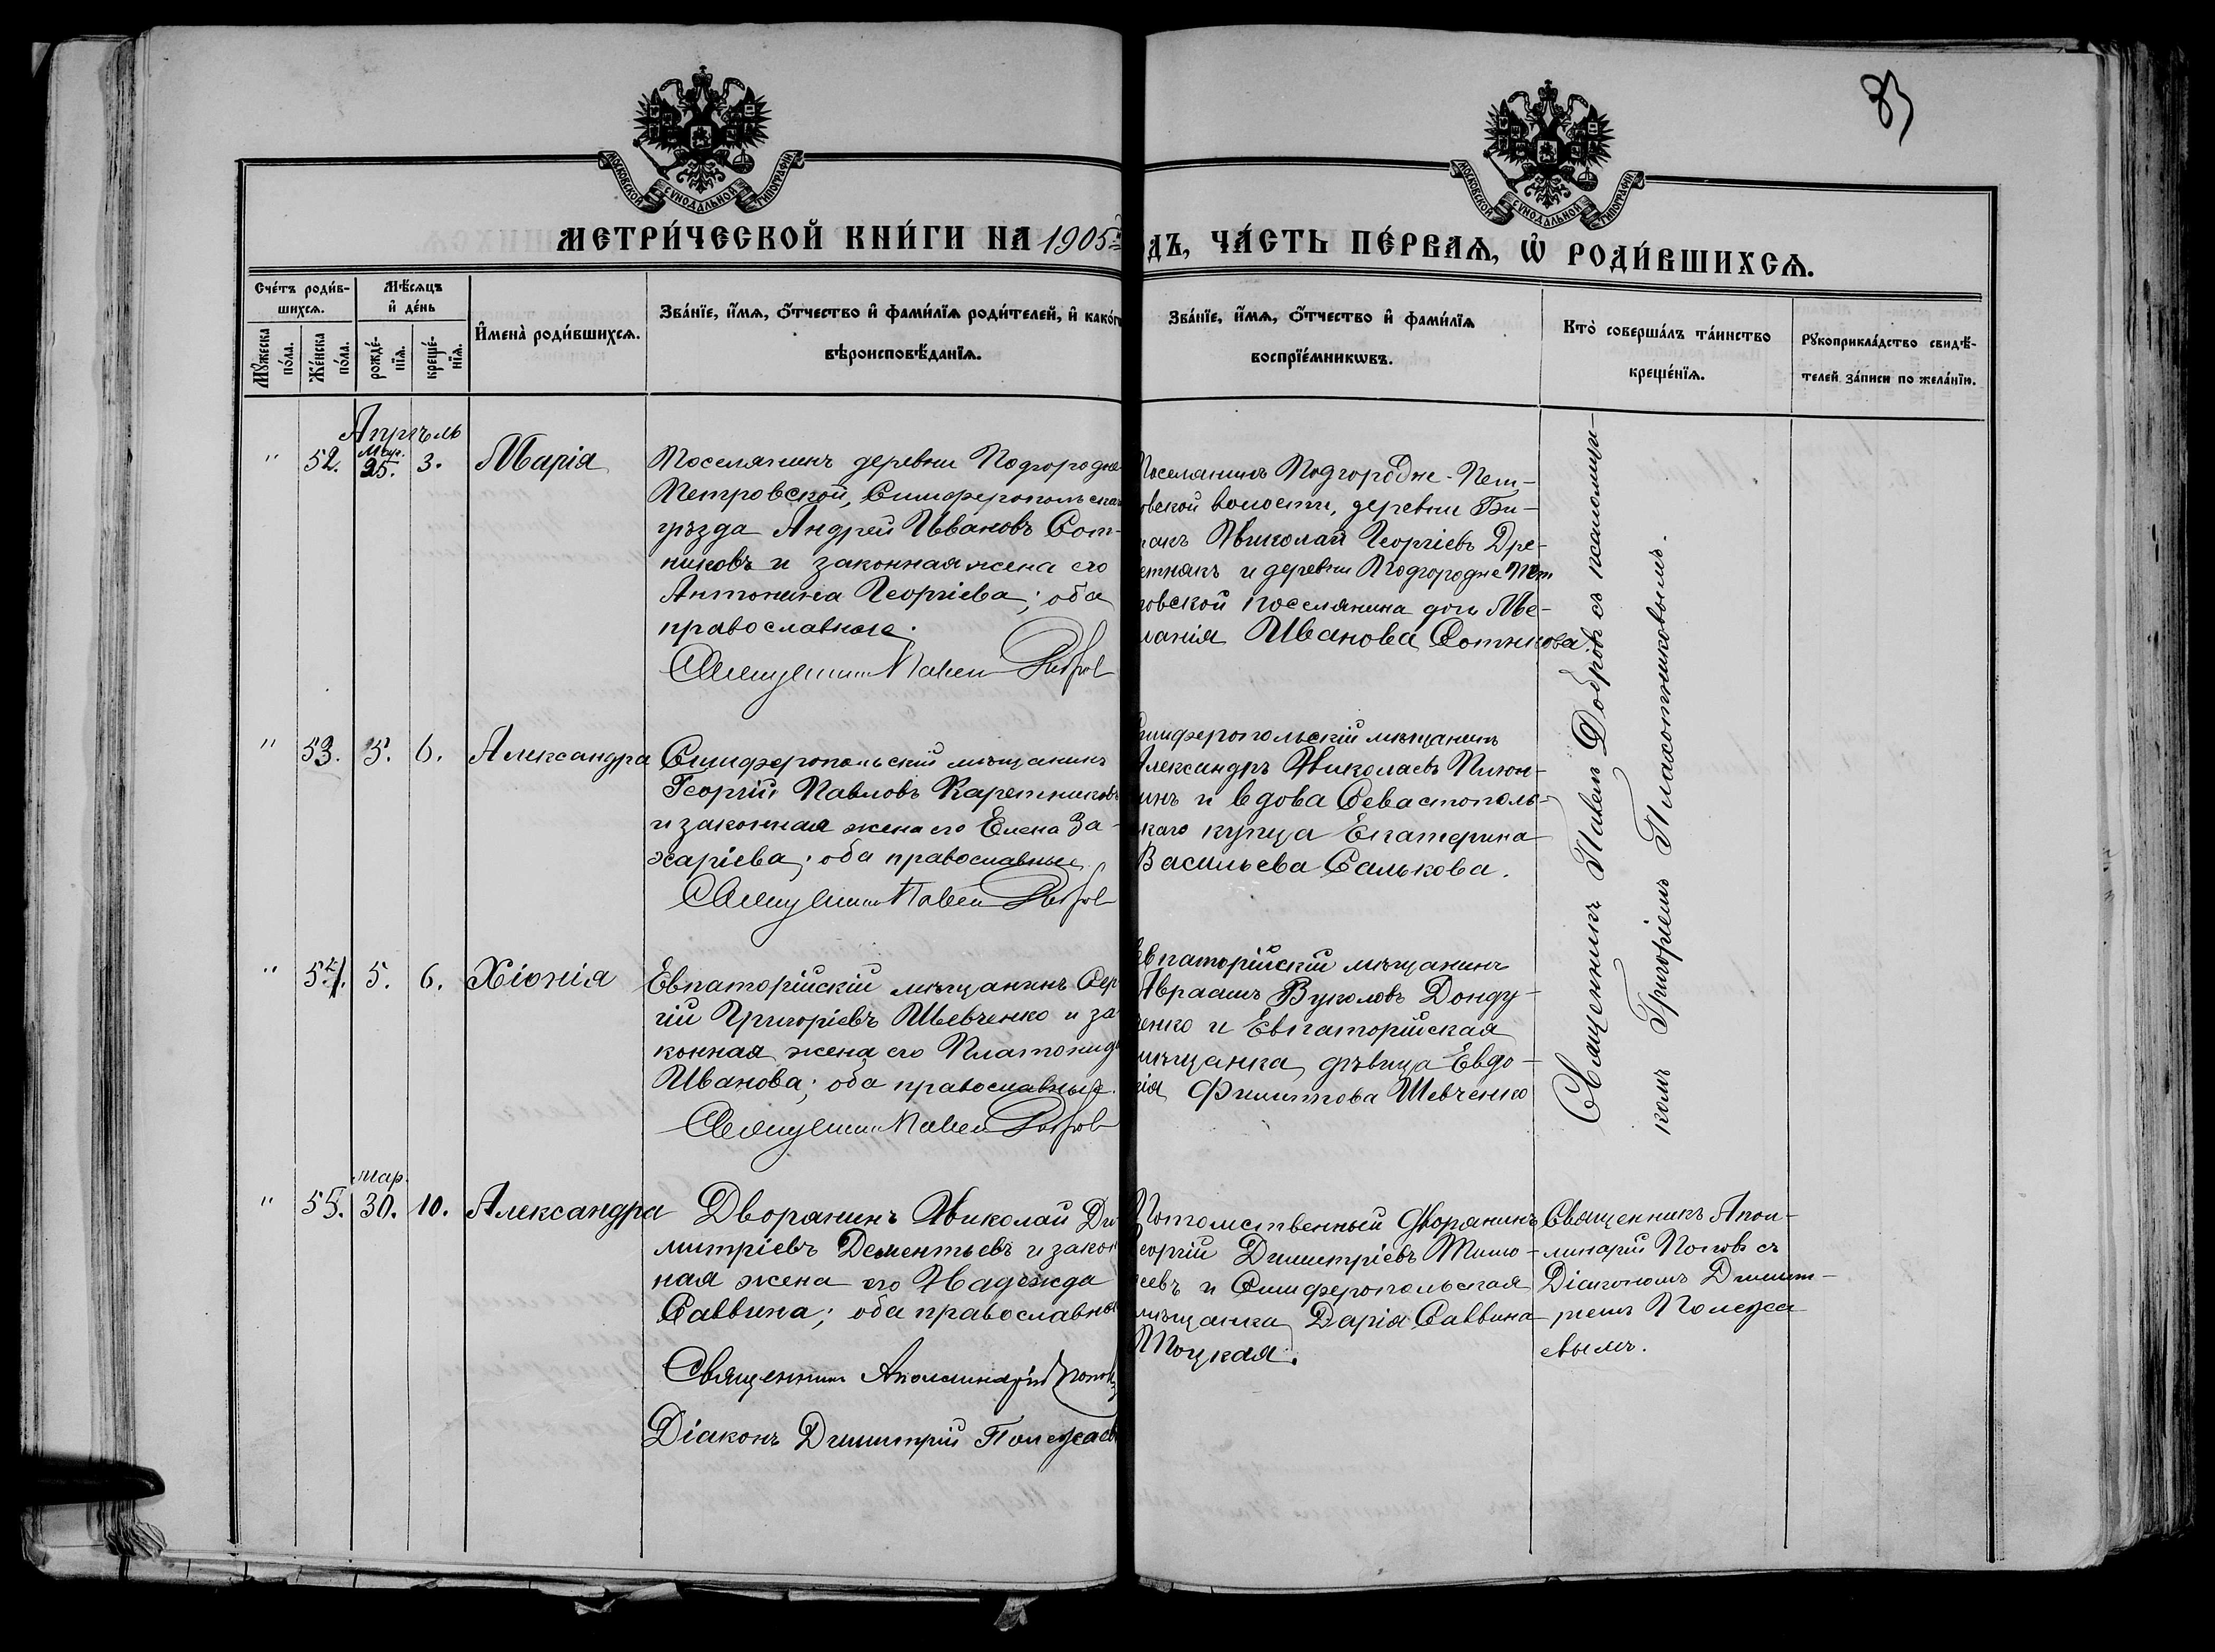 83
МОСКОВСКОЙ СѴНОДАЛЬНОЙ ТИПОГРАФІИ
МОСКОВСКОЙ СѴНОДАЛЬНОЙ ТИПОГРАФІИ
МЕТРИ́ЧЕСКОЙ КНИ́ГИ НА 1905й
ДЪ, ЧА́СТЬ ПЕ́РВАѦ, Ѡ҆ РОДИ́ВШИХСѦ.
Сче́тъ роди́в-
шихсѧ.
Му́жеска по́ла.
Же́нска по́ла.
Мѣ́сѧцъ
и҆ де́нь
рожде́-
нїѧ.
креще́-
нїѧ.
И҆мена̀ роди́вшихсѧ.
Зва́нїе, и҆́мѧ, ѻ҆́тчество и҆ фами́лїѧ роди́телей, и҆ како́гѡ
вѣроисповѣ́данїѧ.
Зва́нїе, и҆́мѧ, ѻ҆́тчество и҆ фами́лїѧ
воспрїе́мникѡвъ.
Кто̀ соверша́лъ та́инство
креще́нїѧ.
Рꙋкоприкла́дство свидѣ́-
телей за́писи по жела́нїю.
Апрѣль
" 52. Мар. 25. 3. Марія
Поселянинъ деревни Подгородне
Петровской, Симферопольскаго
уѣзда Андрей Ивановъ Сот-
никовъ и законная жена его
Антонина Георгіева; оба
православные.
Священникъ Павелъ Добровъ
Поселянинъ Подгородне-Пет-
овской волости, деревни Би-
акъ Николай Георгіевъ Дре-
етнякъ и деревни Подгородне Пет
ровской поселянина дочь Ме-
ланія Иванова Сотникова.
" 53. 5. 6. Александра
Симферопольскій мѣщанинъ
Георгій Павловъ Каретниковъ
и законная жена его Елена За-
харіева; оба православные
Священникъ Павелъ Добровъ
Симферопольскій мѣщанинъ
Александръ Николаевъ Пижон-
инъ и вдова Севастополь-
скаго купца Екатерина
Васильева Салькова.
" 54. 5. 6. Хіонія
Евпаторійскій мѣщанинъ Сер
гій Григоріевъ Шевченко и за
конная жена его Платонида
Иванова; оба православные.
Священникъ Павелъ Добровъ
Евпаторійскій мѣщанинъ
Авраамъ Вуколовъ Донду-
енко и Евпаторійская
мѣщанка, дѣвица Евдо-
кія Филиппова Шевченко
Священникъ Павелъ Добровъ съ псаломщи-
комъ Григоріемъ Плахотниковымъ.
" 55. мар. 30. 10. Александра
Дворянинъ Николай Ди
митріевъ Дементьевъ и закон
ная жена его Надежда
Саввина; оба православные
Священникъ Аполлинарій Поповъ
Діаконъ Димитрій Полежаевъ
Потомственный дворянинъ
Георгій Димитріевъ Тимо-
еевъ и Симферопольская
мѣщанка Дарія Саввина
Троцкая.
Священникъ Апол-
линарій Поповъ съ
Діакономъ Димит-
ріемъ Полежа
евымъ.